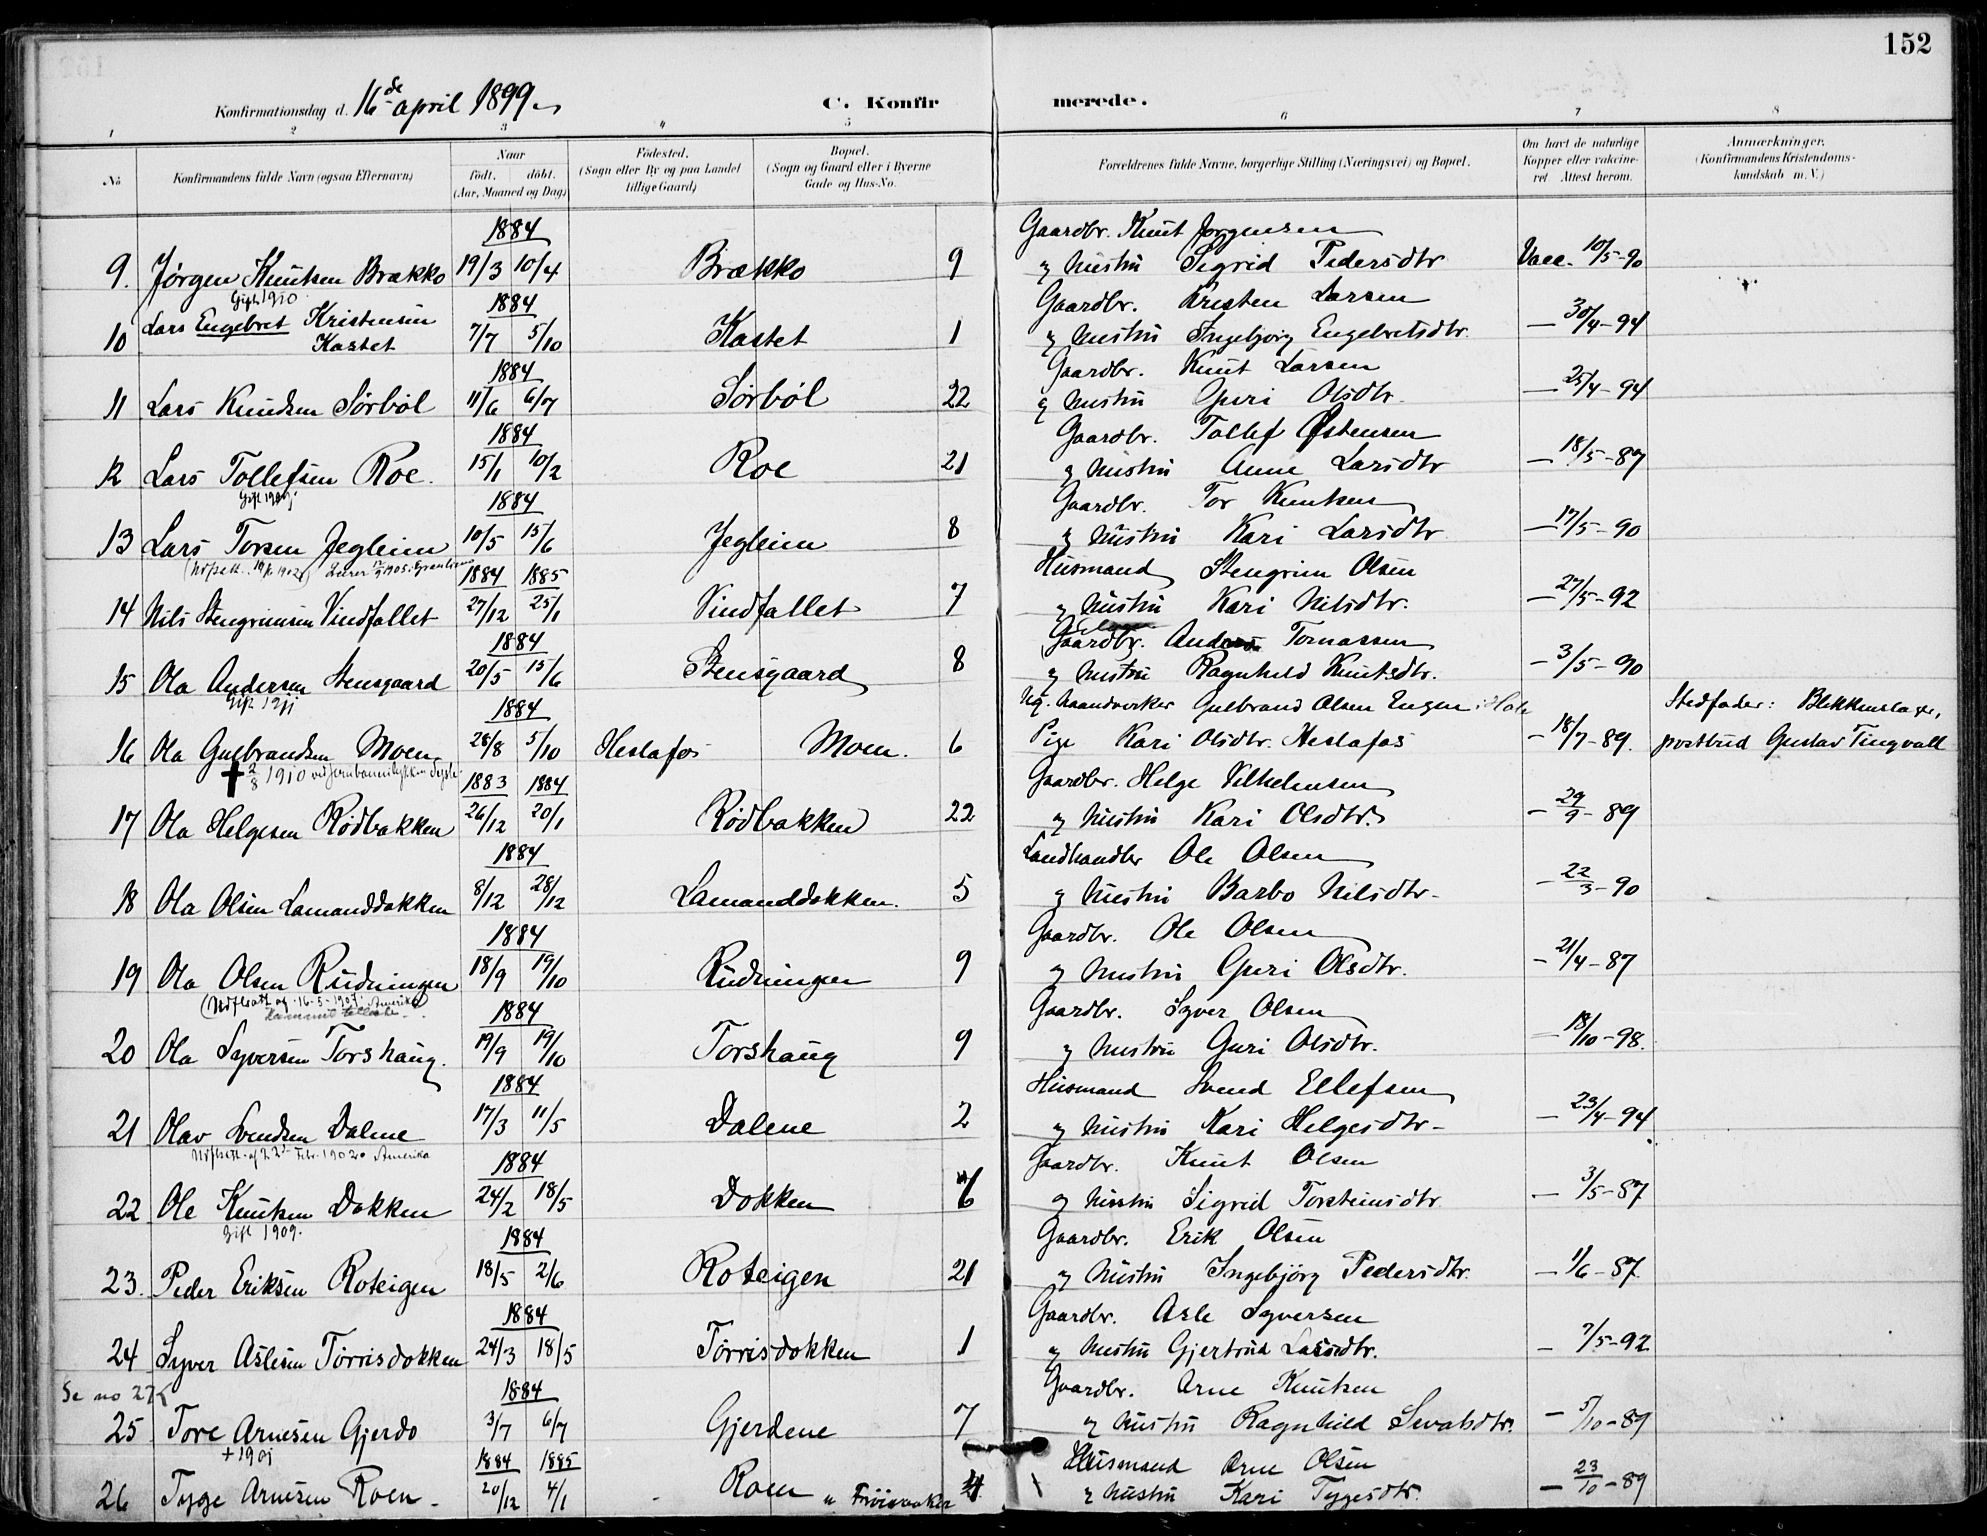 152
Konfirmationsdag d. 16de april 1899.
C. Konfirmerede.
1 2 3 4 5 6 7 8
No Konfirmandens fulde Navn (ogsaa Efternavn)
Naar født. døbt. (Aar, Maaned og Dag)
Fødested. (Sogn eller By og paa Landet tillige Gaard)
Bopæl. (Sogn og Gaard eller i Byerne Gade og Hus-No.
Forældrenes fulde Navne, borgerlige Stilling (Næringsvei) og Bopæl.
Om havt de naturlige Kopper eller vakcineret. Attest herom.
Anmærkninger. (Konfirmandens Kristendomskundskab m. V.)
1884 Gaardbr. Knut Jørgensen
9. Jørgen Knutsen Brækko 19/3 10/4 Brækko 9 og hustru Sigrid Pedersdtr Vacc. 10/5-90
Gift 1910
1884 Gaardbr. Kresten Larsen
10 Lars Engebret Kristensen Kastet 7/7 5/10 Kastet 1 og hustru Ingebjørg Engebretsdtr. — 30/4-94
1884 Gaardbr. Knut Larsen
11 Lars Knudsen Sørbøl 11/6 6/7 Sørbøl 22 og hustru Guri Olsdtr. — 25/4-94
1884 Gaardbr. Tollef Østensen
12 Lars Tollefsen Roe. 15/1 10/2 Roe 21 og hustru Anne Larsdtr — 18/5-87
Gift 1909.
1884 Gaardbr. Tor Knutsen
13 Lars Torsen Jegleim 10/5 15/6 Jegleim 8 og hustru Kari Larsdtr — 17/5-90
1884 1885 Husmand Stengrim Olsen
14 Nils Stengrimsen Vindfallet 27/12 25/1 Vindfallet 7 og hustru Kari Nilsdtr. — 27/5-92
1884 Gaardbr. Anders Tomassen
15 Ola Andersen Stensgaard 20/5 15/6 Stensgaard 8 og hustru Ragnhild Knutsdtr. — 3/5-90
Gift 1911
1884 Ug. haandverker Gulbrand Olsen Engen i Hole Stedfader: Blikkenslager,
16 Ola Gulbrandsen Moen 28/8 5/10 Heslafos Moen. 6 Pige Kari Olsdtr. Heslafos — 18/7-89. postbud Gustav Tingvall
✝ 2/8 1910 ved jernbaneulykken
1883 1884 Gaardbr. Helge Vilhelmsen
17 Ola Helgesen Rødbakken 26/12 20/1 Rødbakken 22 og hustru Kari Olsdtr. — 29/9-89
1884 Landhandler Ole Olsen
18 Ola Olsen Lamanddokken 8/12 28/12 Lamanddokken. 5 og hustru Barbo Nilsdtr — 22/3-90
1884 Gaardbr. Ole Olsen
19 Ola Olsen Rudningen 18/9 19/10 Rudningen 9 og hustru Guri Olsdtr. — 21/4-87
(Udflsatt. af 16-5-1907. Amerika)
1884 Gaardbr. Syver Olsen
20 Ola Syversen Torshaug. 19/9 19/10 Torshaug 9 og hustru Guri Olsdtr. — 18/10-98.
1884 Husmand Svend Ellefsen
21 Olav Svendsen Dalene 17/3 11/5 Dalene 2 og hustru Kari Helgesdtr — 23/4-94
Udflsatt. af 22 Febr. 1902. Amerika
1884 Gaardbr. Knut Olsen
22 Ole Knutsen Dokken 24/2 18/5 Dokken 6 og hustru Sigrid Torsteinsdtr — 3/5-87
Gift 1909.
1884 Gaardbr. Erik Olsen
23. Peder Eriksen Roteigen 18/5 2/6 Roteigen 21 og hustru Ingebjørg Pedersdtr. — 1/6-87
1884 Gaardbr. Asle Syversen
24 Syver Aslesen Tørrisdokken 24/3 18/5 Tørrisdokken 1 og hustru Gjertrud Larsdtr. — 7/5-92
Se no 27
1884 Gaardbr. Arne Knutsen
25 Tore Arnesen Gjerdo 3/7 6/7 Gjerdene 7 og hustru Ragnhild Sevalsdtr. — 5/10-89
+1901
1884 1885 Husmand Arne Olsen
26 Tyge Arnesen Roen 20/12 4/1 Roen 4 og hustru Kari Tygesdtr. — 23/10-89